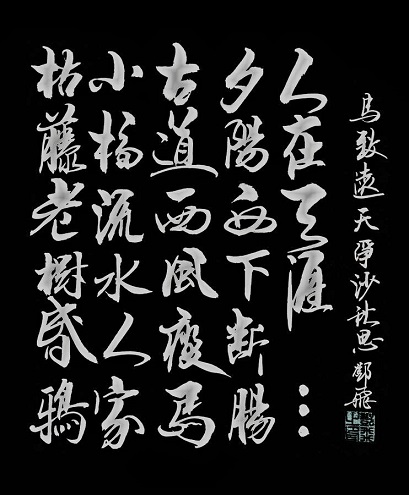 枯藤老樹昏鴉
小橋流水人家
古道西風瘦馬
夕陽西下斷腸
人在天涯…
馬致遠天淨沙秋思鄧飛